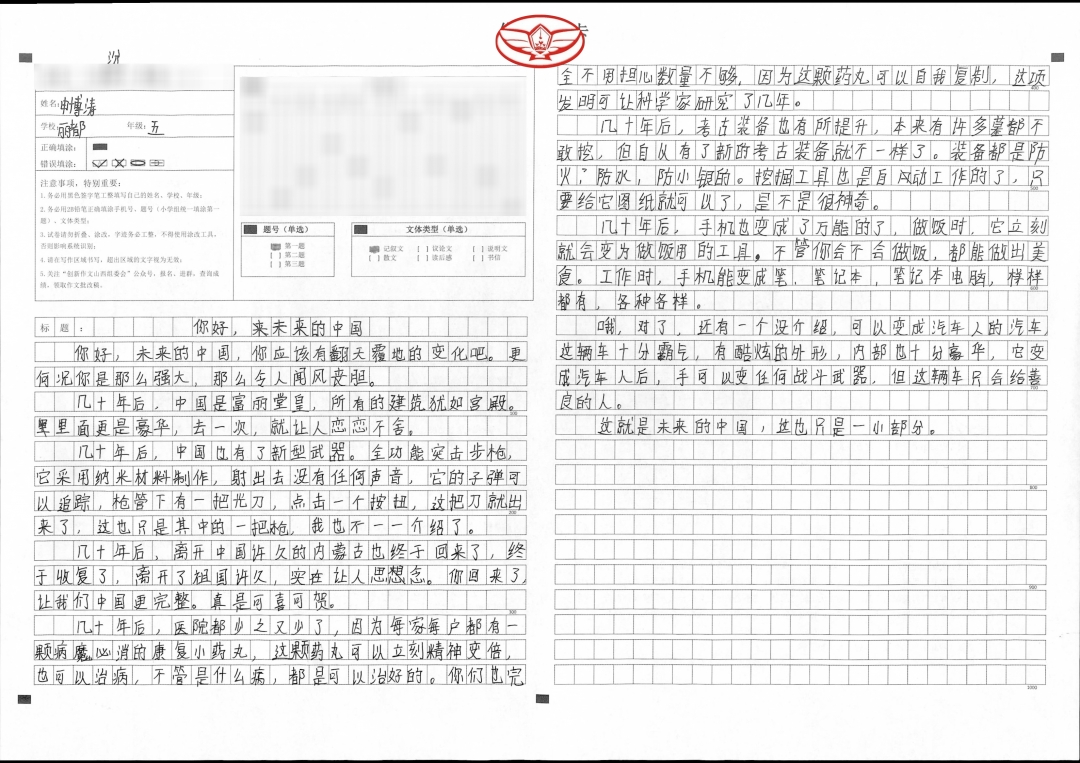 汾
姓名：申博涛
学校：丽都 年级：五
正确填涂：
错误填涂：
注意事项，特别重要：
1.务必用黑色签字笔工整填写自己的姓名、学校、年级；
2.务必用2B铅笔正确填涂手机号、题号（小学组统一填涂第一
题）、文体类型；
3.试卷请勿折叠、涂改，字迹务必工整，不得使用涂改工具，
否则影响系统识别；
4.请在写作区域书写，超出区域的文字视为无效；
5.关注“创新作文山西组委会”公众号，报名、进群、查询成
绩、领取作文批改稿。
题号（单选）
第一题
[ ] 第二题
[ ] 第三题
文体类型（单选）
记叙文 [ ] 议论文 [ ] 说明文
[ ] 散文 [ ] 读后感 [ ] 书信
标题： 你好，来未来的中国
你好，未来的中国，你应该有翻天覆地的变化吧。更
何况你是那么强大，那么令人闻风丧胆。
几十年后，中国是富丽堂皇，所有的建筑犹如宫殿。
里面更是豪华，去一次，就让人恋恋不舍。
100
几十年后，中国也有了新型武器。全功能突击步枪，
它采用纳米材料制作，射出去没有任何声音，它的子弹可
以追踪，枪管下有一把光刀，点击一个按扭，这把刀就出
200
来了，这也只是其中的一把枪，我也不一一介绍了。
几十年后，离开中国许久的内蒙古也终于回来了，终
于收复了，离开了祖国许久，实在让人思想念。你回来了，
让我们中国更完整。真是可喜可贺。
300
几十年后，医院都少之又少了，因为每家每户都有一
颗病魔必消的康复小药丸，这颗药丸可以立刻精神变倍，
也可以治病，不管是什么病，都是可以治好的。你们也完
全不用担心数量不够，因为这颗药丸可以自我复制，这项
400
发明可让科学家研究了几年。
几十年后，考古装备也有所提升，本来有许多墓都不
敢挖，但自从有了新的考古装备就不一样了。装备都是防
火，防水，防小银的。挖掘工具也是自动工作的了，只
500
要给它图纸就可以了，是不是很神奇。
几十年后，手机也变成了万能的了，做饭时，它立刻
就会变为做饭用的工具。不管你会不会做饭，都能做出美
食。工作时，手机能变成笔、笔记本，笔记本电脑，样样
600
都有，各种各样。
哦，对了，还有一个没介绍，可以变成汽车人的汽车，
这辆车十分霸气，有酷炫的外形，内部也十分豪华，它变
成汽车人后，手可以变任何战斗武器，但这辆车只会给善
700
良的人。
这就是未来的中国，这也只是一小部分。
800
900
1000